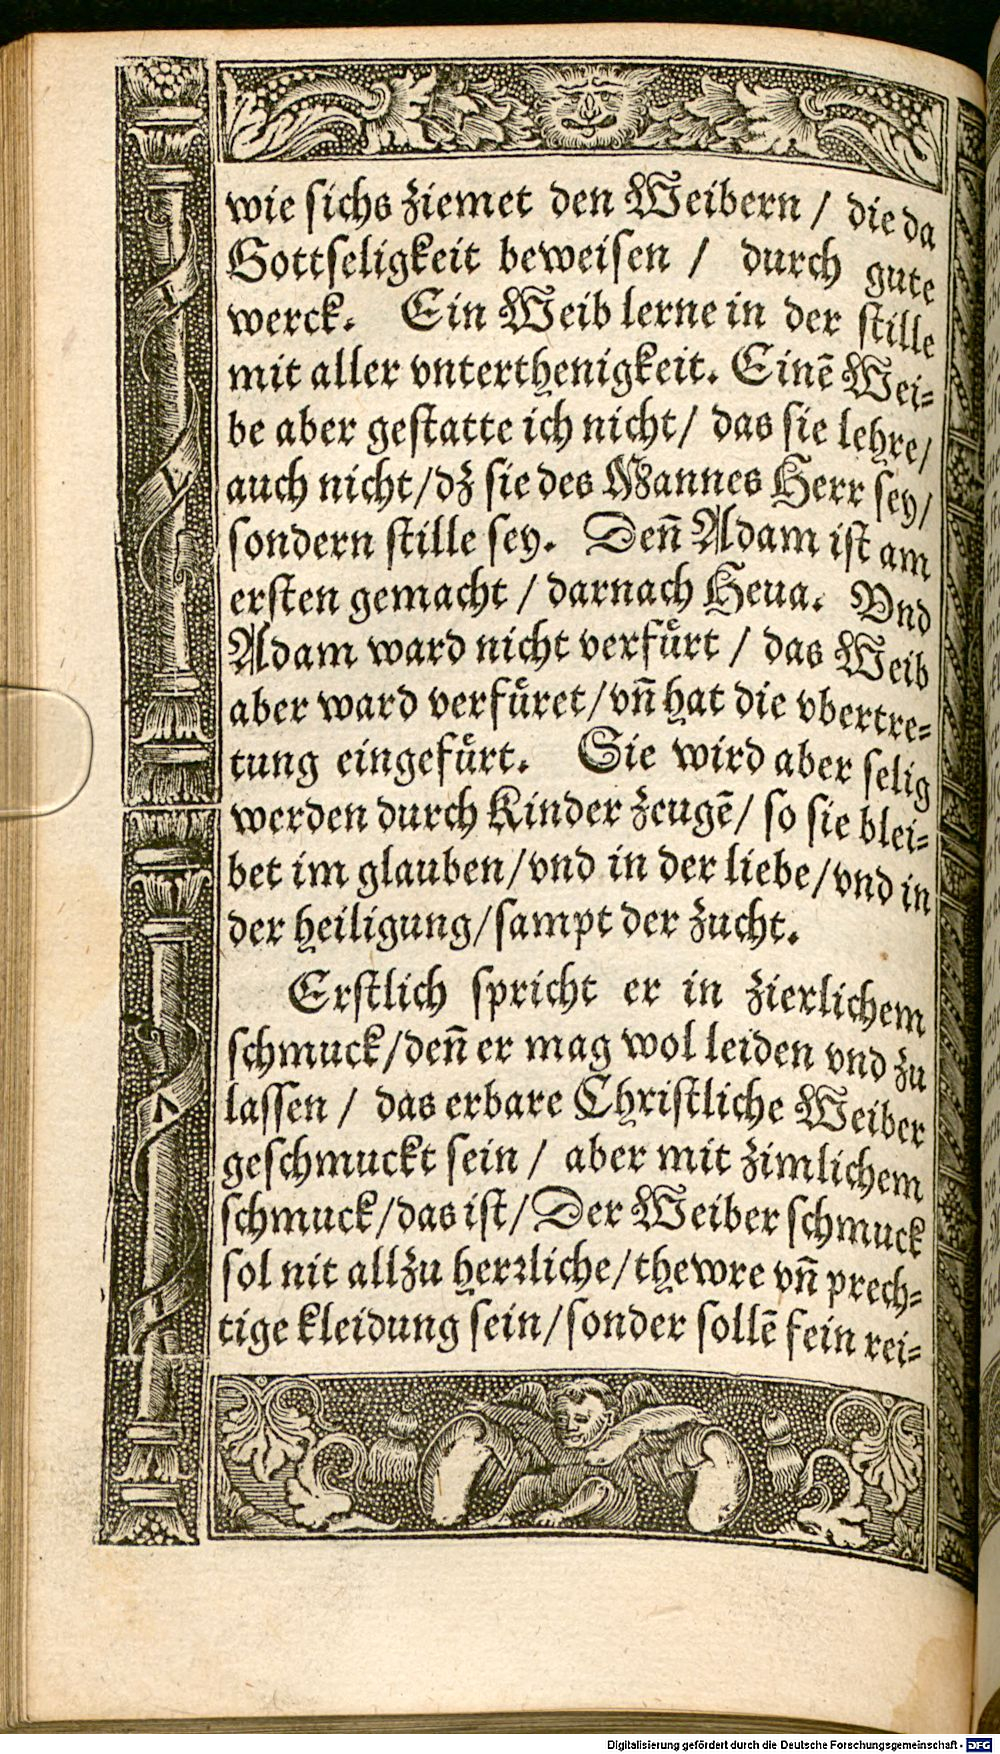 wie sichs ziemet den Weibern / die da
Gottseligkeit beweisen / durch gute
werck. Ein Weib lerne in der stille
mit aller vnterthenigkeit. Einē Wei=
be aber gestatte ich nicht/ das sie lehre/
auch nicht/dz sie des Mannes Herr sey/
sondern stille sey. Deñ Adam ist am
ersten gemacht / darnach Heua. Vnd
Adam ward nicht verfuͤrt / das Weib
aber ward verfuͤret/vñ hat die vbertre=
tung eingefuͤrt. Sie wird aber selig
werden durch Kinder zeugē/ so sie blei=
bet im glauben/vnd in der liebe/vnd in
der heiligung/sampt der zucht.
Erstlich spricht er in zierlichem
schmuck/deñ er mag wol leiden vnd zu
lassen / das erbare Christliche Weiber
geschmuckt sein / aber mit zimlichem
schmuck/das ist/ Der Weiber schmuck
sol nit allzu herꝛliche/thewre vñ prech=
tige kleidung sein/sonder sollē fein rei=
Digitalisierung gefördert durch die Deutsche Forschungsgemeinschaft - DFG